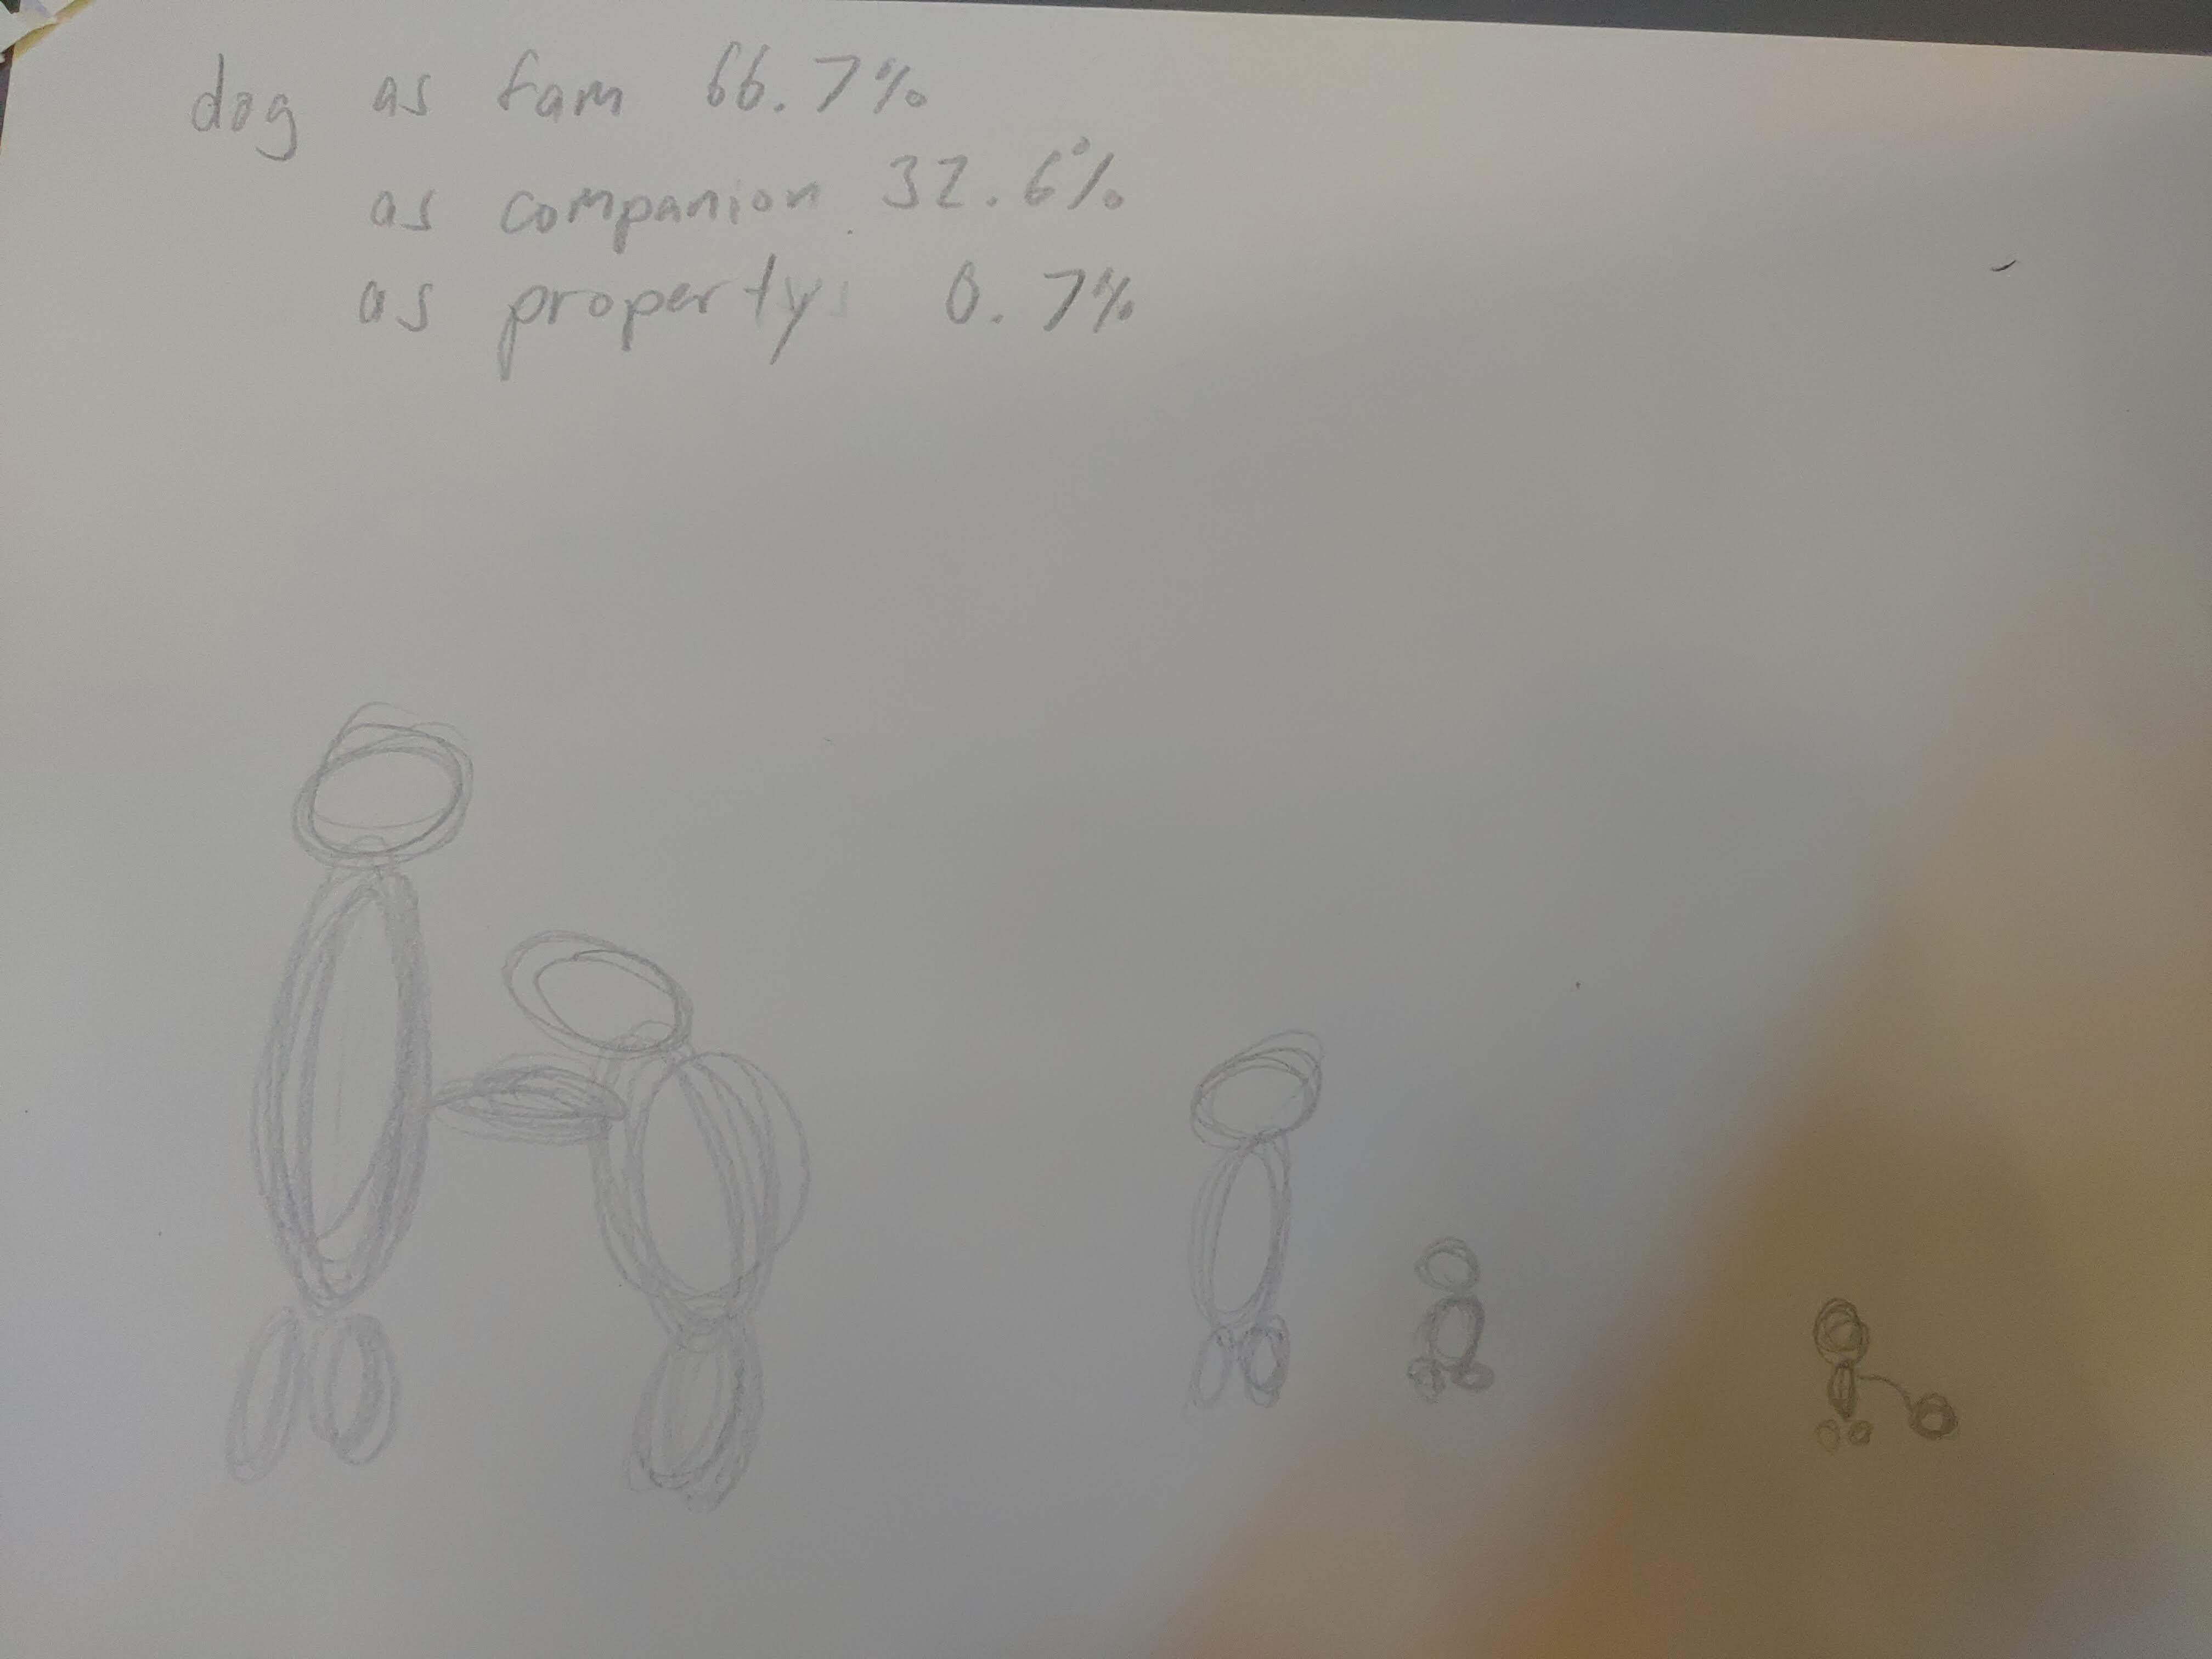 dog as fam 66.7%
as companion 32.6%
as property 0.7%